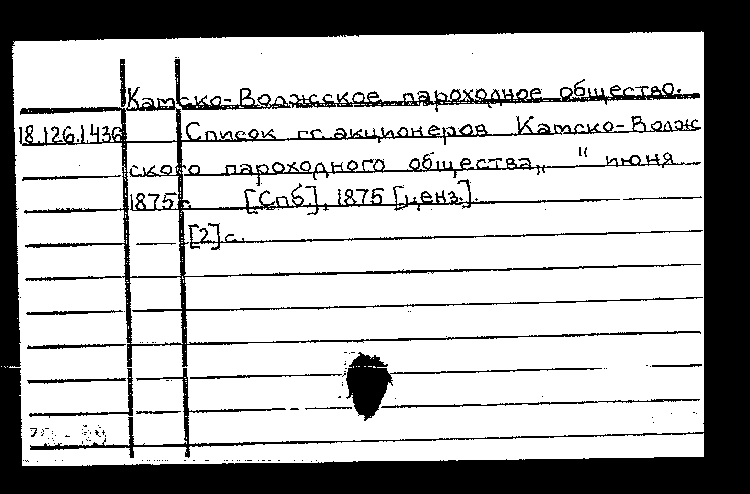 Камско-Волжское пароходное общество.
18.126.1.436 Список гг. акционеров Камско-Волж
ского пароходного общества „ " июня
1875 г. [Спб.], 1875 [ценз.].
[2] с.